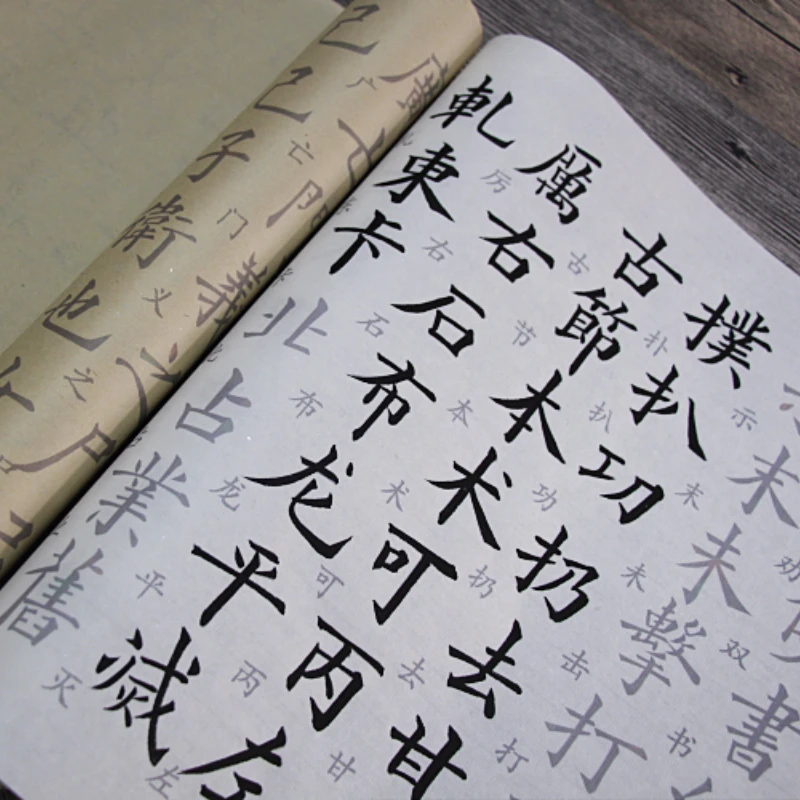 書
劝双书
末未擊打
示末未击打
撲扒功扔去甘
扑扒功扔去甘
古節本术可丙左
古节本术可丙左
厲右石布龙平滅
厉右石布龙平灭
軋東卡北占業舊
廣亡門義之尸
广亡门义之
己已子衛也